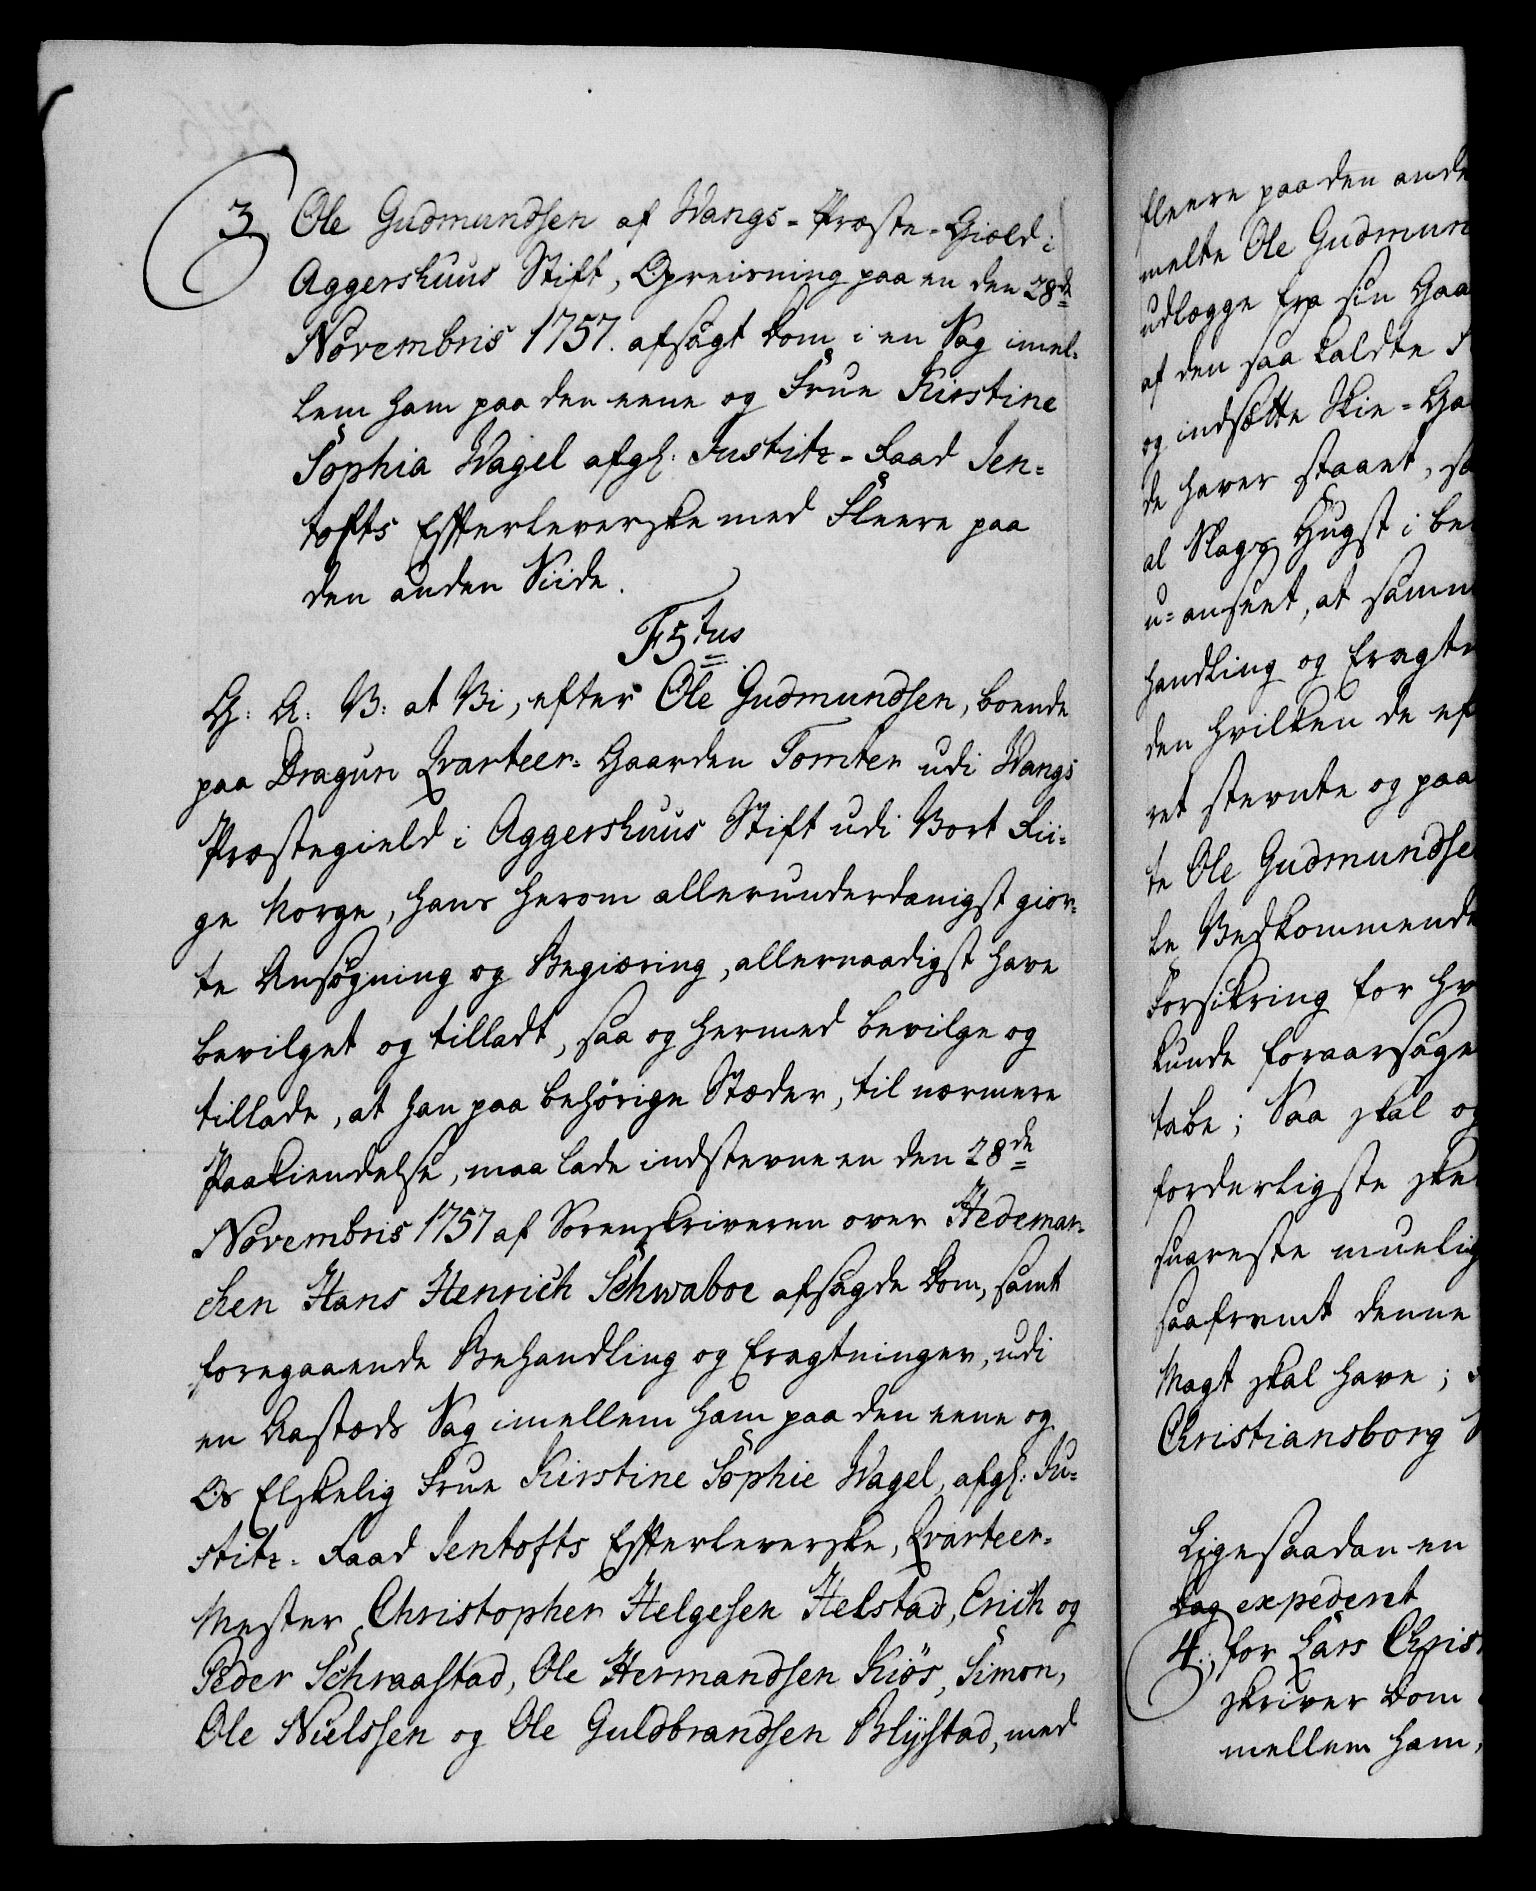 3, Ole Gudmundsen af Wangs-Præste-Giæld i
Aggershuus Stift, Opreisning paa en den 28de
Novembris 1757. afsagt Dom i en Sag imel-
lem ham paa den eene og Frue Kirstine
Sophia Wagel afgl. Justitz-Raad Jen-
tofts Efterleverske med Fleere paa
den anden Siide.
F5tus
G: A: V: at Vi, efter Ole Gudmundsen, boende
paa Dragun Qvarteer-Gaarden Tomter udi Wangs
Præstegield i Aggershuus Stift udi Vort Rii-
ge Norge, hans herom allerunderdanigst gior-
te Ansøgning og Begiæring, allernaadigst have
bevilget og tilladt, saa og hermed bevilge og
tillade, at han paa behørige Stæder, til nærmere
Paakiendelse, maa lade indstevne en den 28de
Novembris 1757 af Sorenskriveren over Hedemar-
chen Hans Henrich Schwaboe afsagde Dom, samt
foregaaende Behandling og Eragtninger, udi
en Aastæds Sag imellem ham paa den eene og
Os Elskelig Frue Kirstine Sophie Wagel, afgl: Ju-
stitz-Raad Jentofts Efterleverske, Qvarteer-
Mester Christopher Helgesen Helstad, Erich og
Peder Schraastad, Ole Hermandsen Kiøs, Simon,
Ole Nielssen og Ole Guldbrandsen Blystad, med
fleere paa den ande
melte Ole Gudmun
udlægge fra sin Gaa
af den saa kaldte
og indsætte Skie-Ga
de haver staaet, sa
al Slags Hugst i be
u-anseet, at samm
handling og Eragtn
den hvilken de ef
ret stevnte og paa
te Ole Gudmundse
le Vedkommende
Forsikring for hv
kunde foraarsage
tabe; Saa skal og
forderligste ske
snareste muelig
saafremt denne
Magt skal have;
Christiansborg
Ligesaadan en
Dag expederet
4., for Lars Chris
skriver Dom
mellem ham,